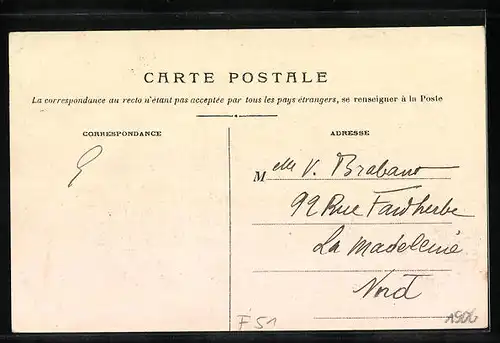 CARTE POSTALE
La correspondance au recto n'étant pas acceptée par tous les pays étrangers, se renseigner à la Poste
CORRESPONDANCE
ADRESSE
Melle V. Brabant
92 Rue Faidherbe
La Madeleine
Nord
F 51
1906